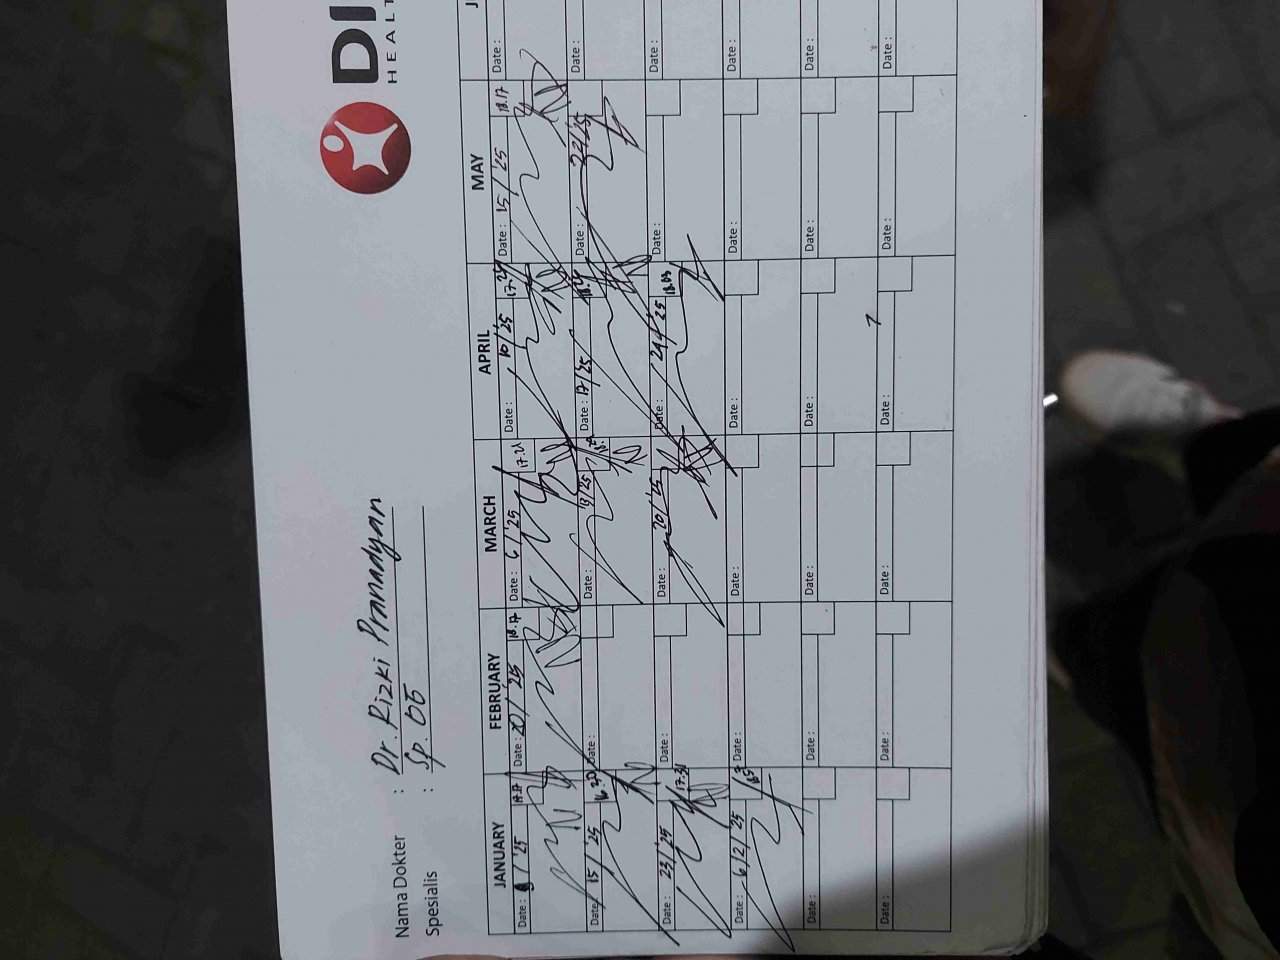 DI
HEALT
Nama Dokter : Dr. Rizki Pranadyan
Spesialis : Sp. OT
JANUARY FEBRUARY MARCH APRIL MAY J
Date : /'25 Date : 20/'25 18.17 Date : 6/'25 17.21 Date : 10/'25 Date : 15/'25 18.17 Date :
Date : 15/'25 Date : Date : 13/25 Date : 17/'25 Date : 22/'25 Date :
Date : 23/'25 17.31 Date : Date : 20/'25 Date : 24/'25 18.03 Date : Date :
Date : 6/2/'25 Date : Date : Date : Date : Date :
Date : Date : Date : Date : Date : Date :
Date : Date : Date : Date : Date : Date :